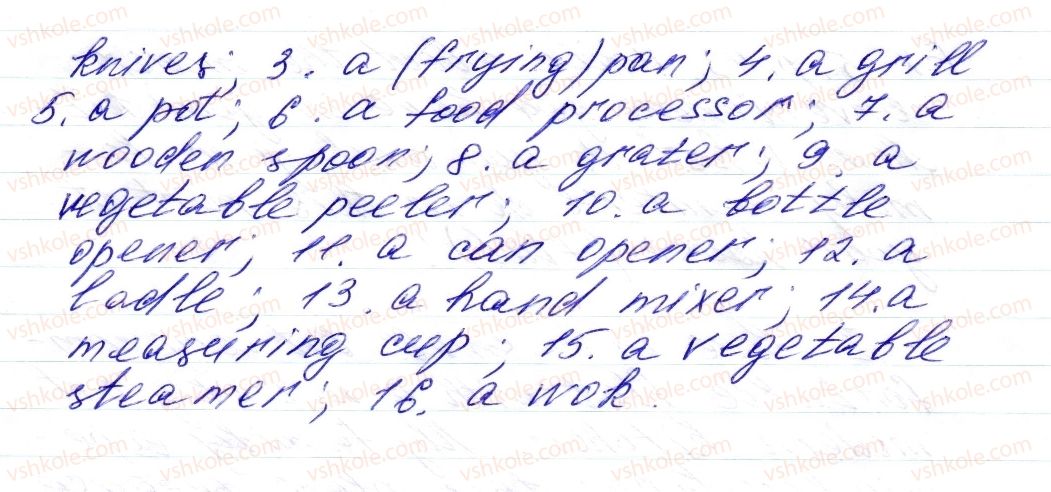 knives; 3. a (frying) pan; 4. a grill
5. a pot; 6. a food processor; 7. a
wooden spoon; 8. a grater; 9. a
vegetable peeler; 10. a bottle
opener; 11. a can opener; 12. a
ladle; 13. a hand mixer; 14. a
measuring cup; 15. a vegetable
steamer; 16. a wok.